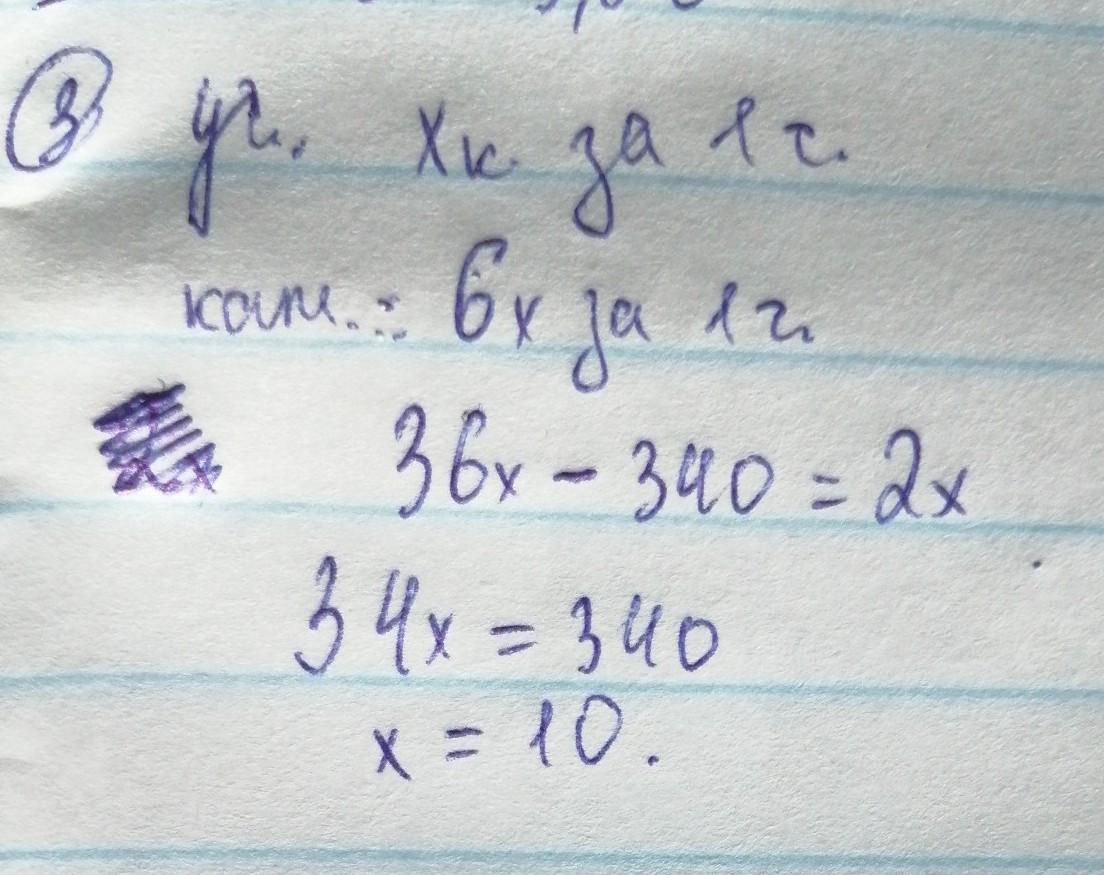 ③ уч. xк за 1 ч.
кам.: 6x за 1 ч.
36x - 340 = 2x
34x = 340
x = 10.